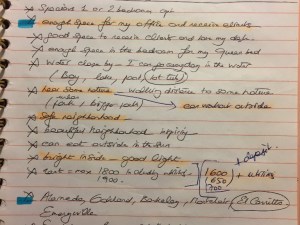 Spacious 1 or 2 bedroom apt
enough space for my office and receive clients
good space to receive clients and have my desk.
enough space in the bedroom for my queen bed
Water close by - I can go everyday in the water
(Bay, lake, pool, hot tub)
near some nature - walking distance to some nature
(park, bigger park) can workout outside
Safe neighborhood
beautiful neighborhood inspiring
can eat outside in the sun
bright inside - good light
+ deposit
rent: max 1800 includ. utilities 1600 + utilities
1900. 1650
1700
Alameda, Oakland, Berkeley, El Cerrito
Emeryville